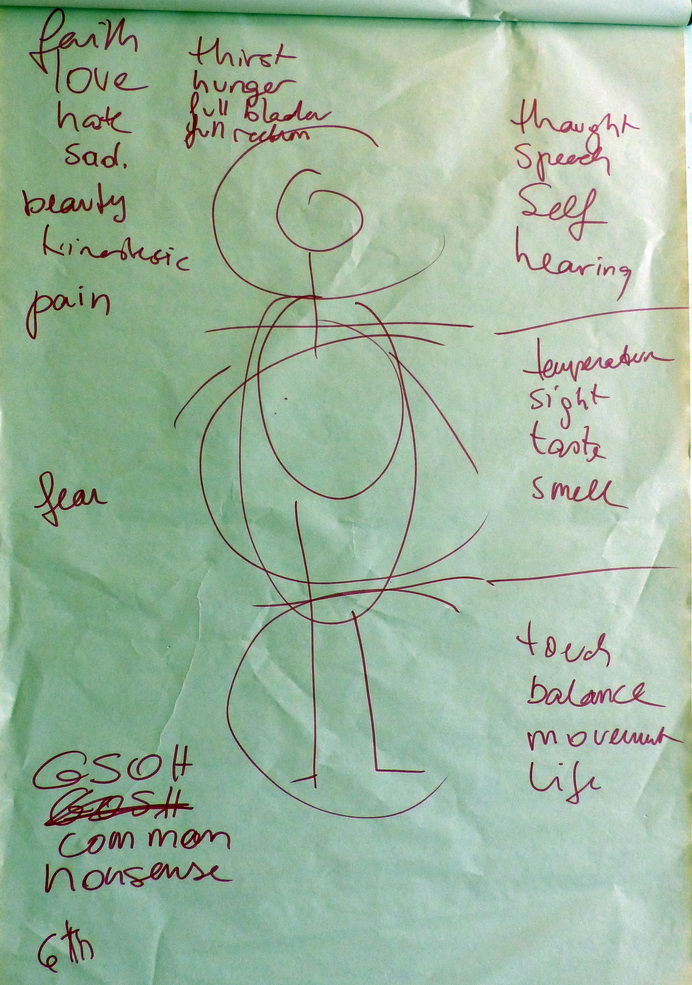 faith
love
hate
sad.
beauty
kinestesic
pain
fear
GSOH
GOSH
common
nonsense
6th
thirst
hunger
full bladder
full rectum
thought
speech
Self
hearing
temperature
sight
taste
smell
touch
balance
movement
Life